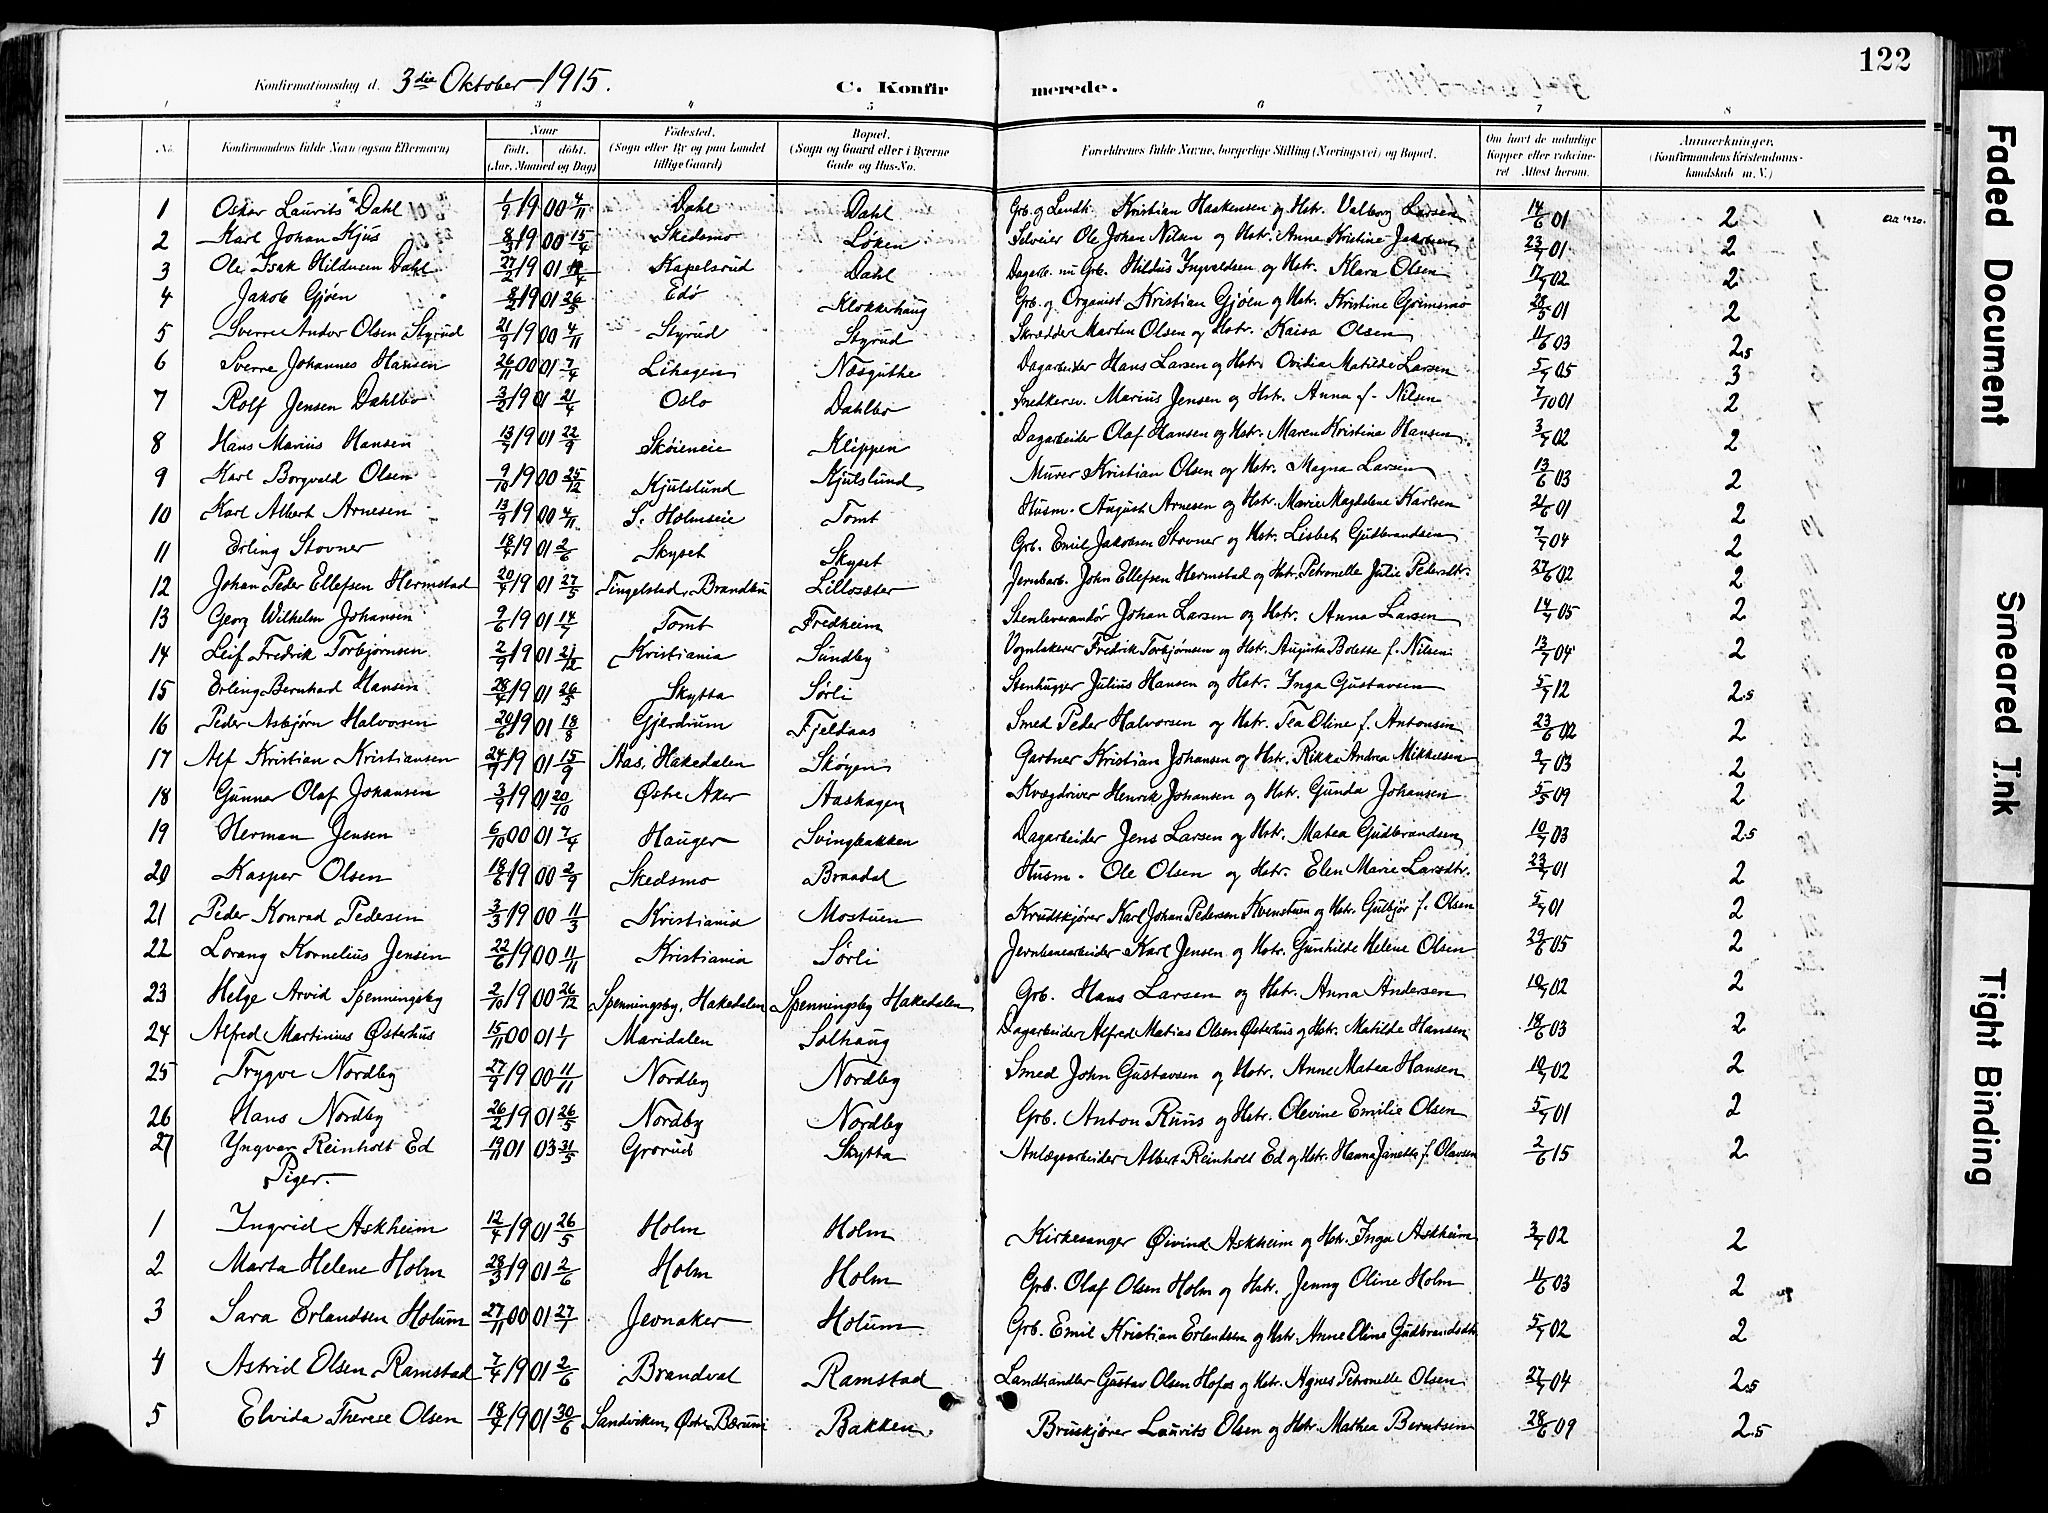 122
Konfirmationsdag d. 3die Oktober 1915. C. Konfirmerede.
1 2 3 4 5 6 7 8
No. Konfirmandens fulde Navn (ogsaa Efternavn) Naar født. døbt. (Aar, Maaned og Dag) Fødested. (Sogn eller By og paa Landet tillige Gaard) Bopæl. (Sogn og Gaard eller i Byerne Gade og Hus-No. Forældrenes fulde Navne, borgerlige Stilling (Næringsvei) og Bopæl. Om havt de naturlige Kopper eller vaccineret Attest herom. Anmerkninger. (Konfirmandens Kristendomskundskab m. V.)
1 Oskar Laurits Dahl 1/9 1900 4/11 Dahl Dahl Grb. og Landh. Kristian Haakensen og Hstr. Valborg Larsen 14/6 01 2
2 Karl Johan Kjus 8/3 1900 15/4 Skedsmo Løken Selveier Ole Johan Nilsen og Hstr. Anna Kristine Jakobsen 23/7 01 2
3 Ole Isak Hildusen Dahl 27/2 1901 Kapelsrud Dahl Dagarb. nu Grb. Hildus Ingvaldsen og Hstr. Klara Olsen 17/7 02 2
4 Jakob Gjøen 8/2 1901 26/5 Edø Klokkerhaug Grb. og Organist Kristian Gjøen og Hstr. Kristine Grimsmo 28/5 01 2
5 Sverre Andor Olsen Styrud 21/9 1900 4/11 Styrud Styrud Skrædder Marten Olsen og Hstr. Kaisa Olsen 11/6 03 2.5
6 Sverre Johannes Hansen 26/11 00 01 7/4 Lihagen Næsguthe Dagarbeider Hans Larsen og Hstr. Ovidia Matilde Larsen 5/7 05 3
7 Rolf Jensen Dahlbo 3/2 1901 21/4 Oslo Dahlbo Snedkersv. Marius Jensen og Hstr. Anna f. Nilsen 7/10 01 2
8 Hans Marius Hansen 13/7 1901 22/9 Skøieneie Klippen Dagarbeider Olaf Hansen og Hstr. Maren Kristina Hansen 3/7 02 2
9 Karl Borgvald Olsen 9/10 1900 25/12 Kjulslund Kjulslund Murer Kristian Olsen og Hstr. Magna Larsen 13/6 03 2
10 Karl Albert Arnesen 13/9 1900 4/11 S. Holmseie Tomt Husm. August Arnesen og Hstr. Marie Magdalene Karlsen 21/6 01 2
11 Erling Stovner 18/4 1901 2/6 Skyset Skyset Grb. Emil Jakobsen Stovner og Hstr. Lisbet Gudbrandsen 7/7 04 2
12 Johan Peder Ellefsen Hermstad 20/4 1901 27/5 Tingelstad, Brandbu Lillosæter Jernbarb. John Ellefsen Hermstad og Hstr. Petronelle Julie Pedersdtr. 27/6 02 2
13 Georg Wilhelm Johansen 9/6 1901 14/7 Tomt Fredheim Stenleverandør Johan Larsen og Hstr. Anna Larsen 14/7 05 2
14 Leif Fredrik Torbjørnsen 2/9 1901 21/12 Kristiania Sundby Vognlakerer Fredrik Torbjørnsen og Hstr. Augusta Bolette f. Nilsen 13/7 04 2
15 Erling Bernhard Hansen 28/4 1901 26/5 Skytta Sørli Stenhugger Julius Hansen og Hstr. Inga Gustavsen 5/7 12 2.5
16 Peder Asbjørn Halvorsen 20/6 1901 18/8 Gjerdrum Fjeldaas Smed Peder Halvorsen og Hstr. Tea Oline f. Antonsen 23/6 02 2
17 Alf Kristian Kristiansen 24/7 1901 15/9 Aas, Hakedalen Skøyen Gartner Kristian Johansen og Hstr. Rikka Andrea Mikkelsen 2/7 03 2
18 Gunnar Olaf Johansen 3/9 1901 20/10 Østre Aker Aashagen Kvægdriver Henrik Johansen og Hstr. Gunda Johansen 5/5 09 2
19 Herman Jensen 6/10 00 01 7/4 Hauger Svingbakken Dagarbeider Jens Larsen og Hstr. Matea Gudbrandsen 10/7 03 2.5
20 Kasper Olsen 18/6 1900 2/9 Skedsmo Braadal Husm. Ole Olsen og Hstr. Elen Marie Larsdtr. 23/7 01 2
21 Peder Konrad Pedersen 3/3 1900 11/3 Kristiania Mostuen Krudtkjører Karl Johan Pedersen Kvenstuen og Hstr. Gulbjør f. Olsen 5/7 01 2
22 Lorang Kornelius Jensen 22/6 1900 11/11 Kristiania Sørli Jernbanearbeider Karl Jensen og Hstr. Gunhilde Helene Olsen 29/6 05 2
23 Helge Arvid Spenningsby 2/10 1900 26/12 Spenningsby, Hakedalen Spenningsby Hakedalen Grb. Hans Larsen og Hstr. Anna Andersen 10/7 02 2
24 Alfred Martinius Østerhus 15/11 00 01 1/1 Maridalen Solhaug Dagarbeider Alfred Matias Olsen Østerhus og Hstr. Matilde Hansen 18/6 03 2
25 Trygve Nordby 27/9 1900 11/11 Nordby Nordby Smed John Gustavsen og Hstr. Anne Matea Hansen 10/7 02 2
26 Hans Nordby 26/2 1901 26/5 Nordby Nordby Grb. Anton Ruus og Hstr. Olevine Emilie Olsen 5/7 01 2
27 Yngvar Reinholt Ed 19/11 01 03 31/5 Grorud Skytta Anlægsarbeider Albert Reinholt Ed og Hstr. Hanna Janette f. Olavsen 2/6 15 2
Piger.
1 Ingrid Askheim 12/4 1901 26/5 Holm Holm Kirkesanger Øivind Askheim og Hstr. Inga Askheim 3/7 02 2
2 Marta Helene Holm 28/3 1901 2/6 Holm Holm Grb. Olaf Olsen Holm og Hstr. Jenny Oline Holm 11/6 03 2
3 Sara Erlandsen Holum 27/11 00 01 27/1 Jevnaker Holum Grb. Emil Kristian Erlandsen og Hstr. Anne Oline Gudbrandsdtr 5/7 02 2
4 Astrid Olsen Ramstad 7/4 1901 2/6 Brandval Ramstad Landhandler Gustav Olsen Hofos og Hstr. Agnes Petronelle Olsen 27/7 04 2.5
5 Elvida Therese Olsen 18/4 1901 30/6 Sandviken, Østre Bærum Bakken Bruskjører Laurits Olsen og Hstr. Mathea Berntsen 28/6 09 2.5
Faded Document
Smeared Ink
Tight Binding